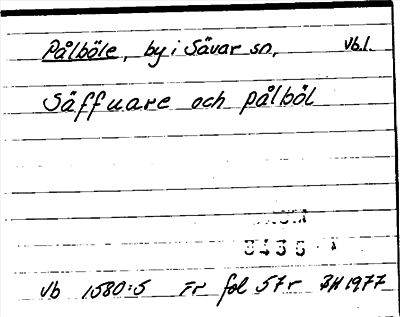 Pålböle, by i Sävar sn, Vb.l.
Säffuare och pålböl
Vb 1580:5 Fr fol 57r BH 1977